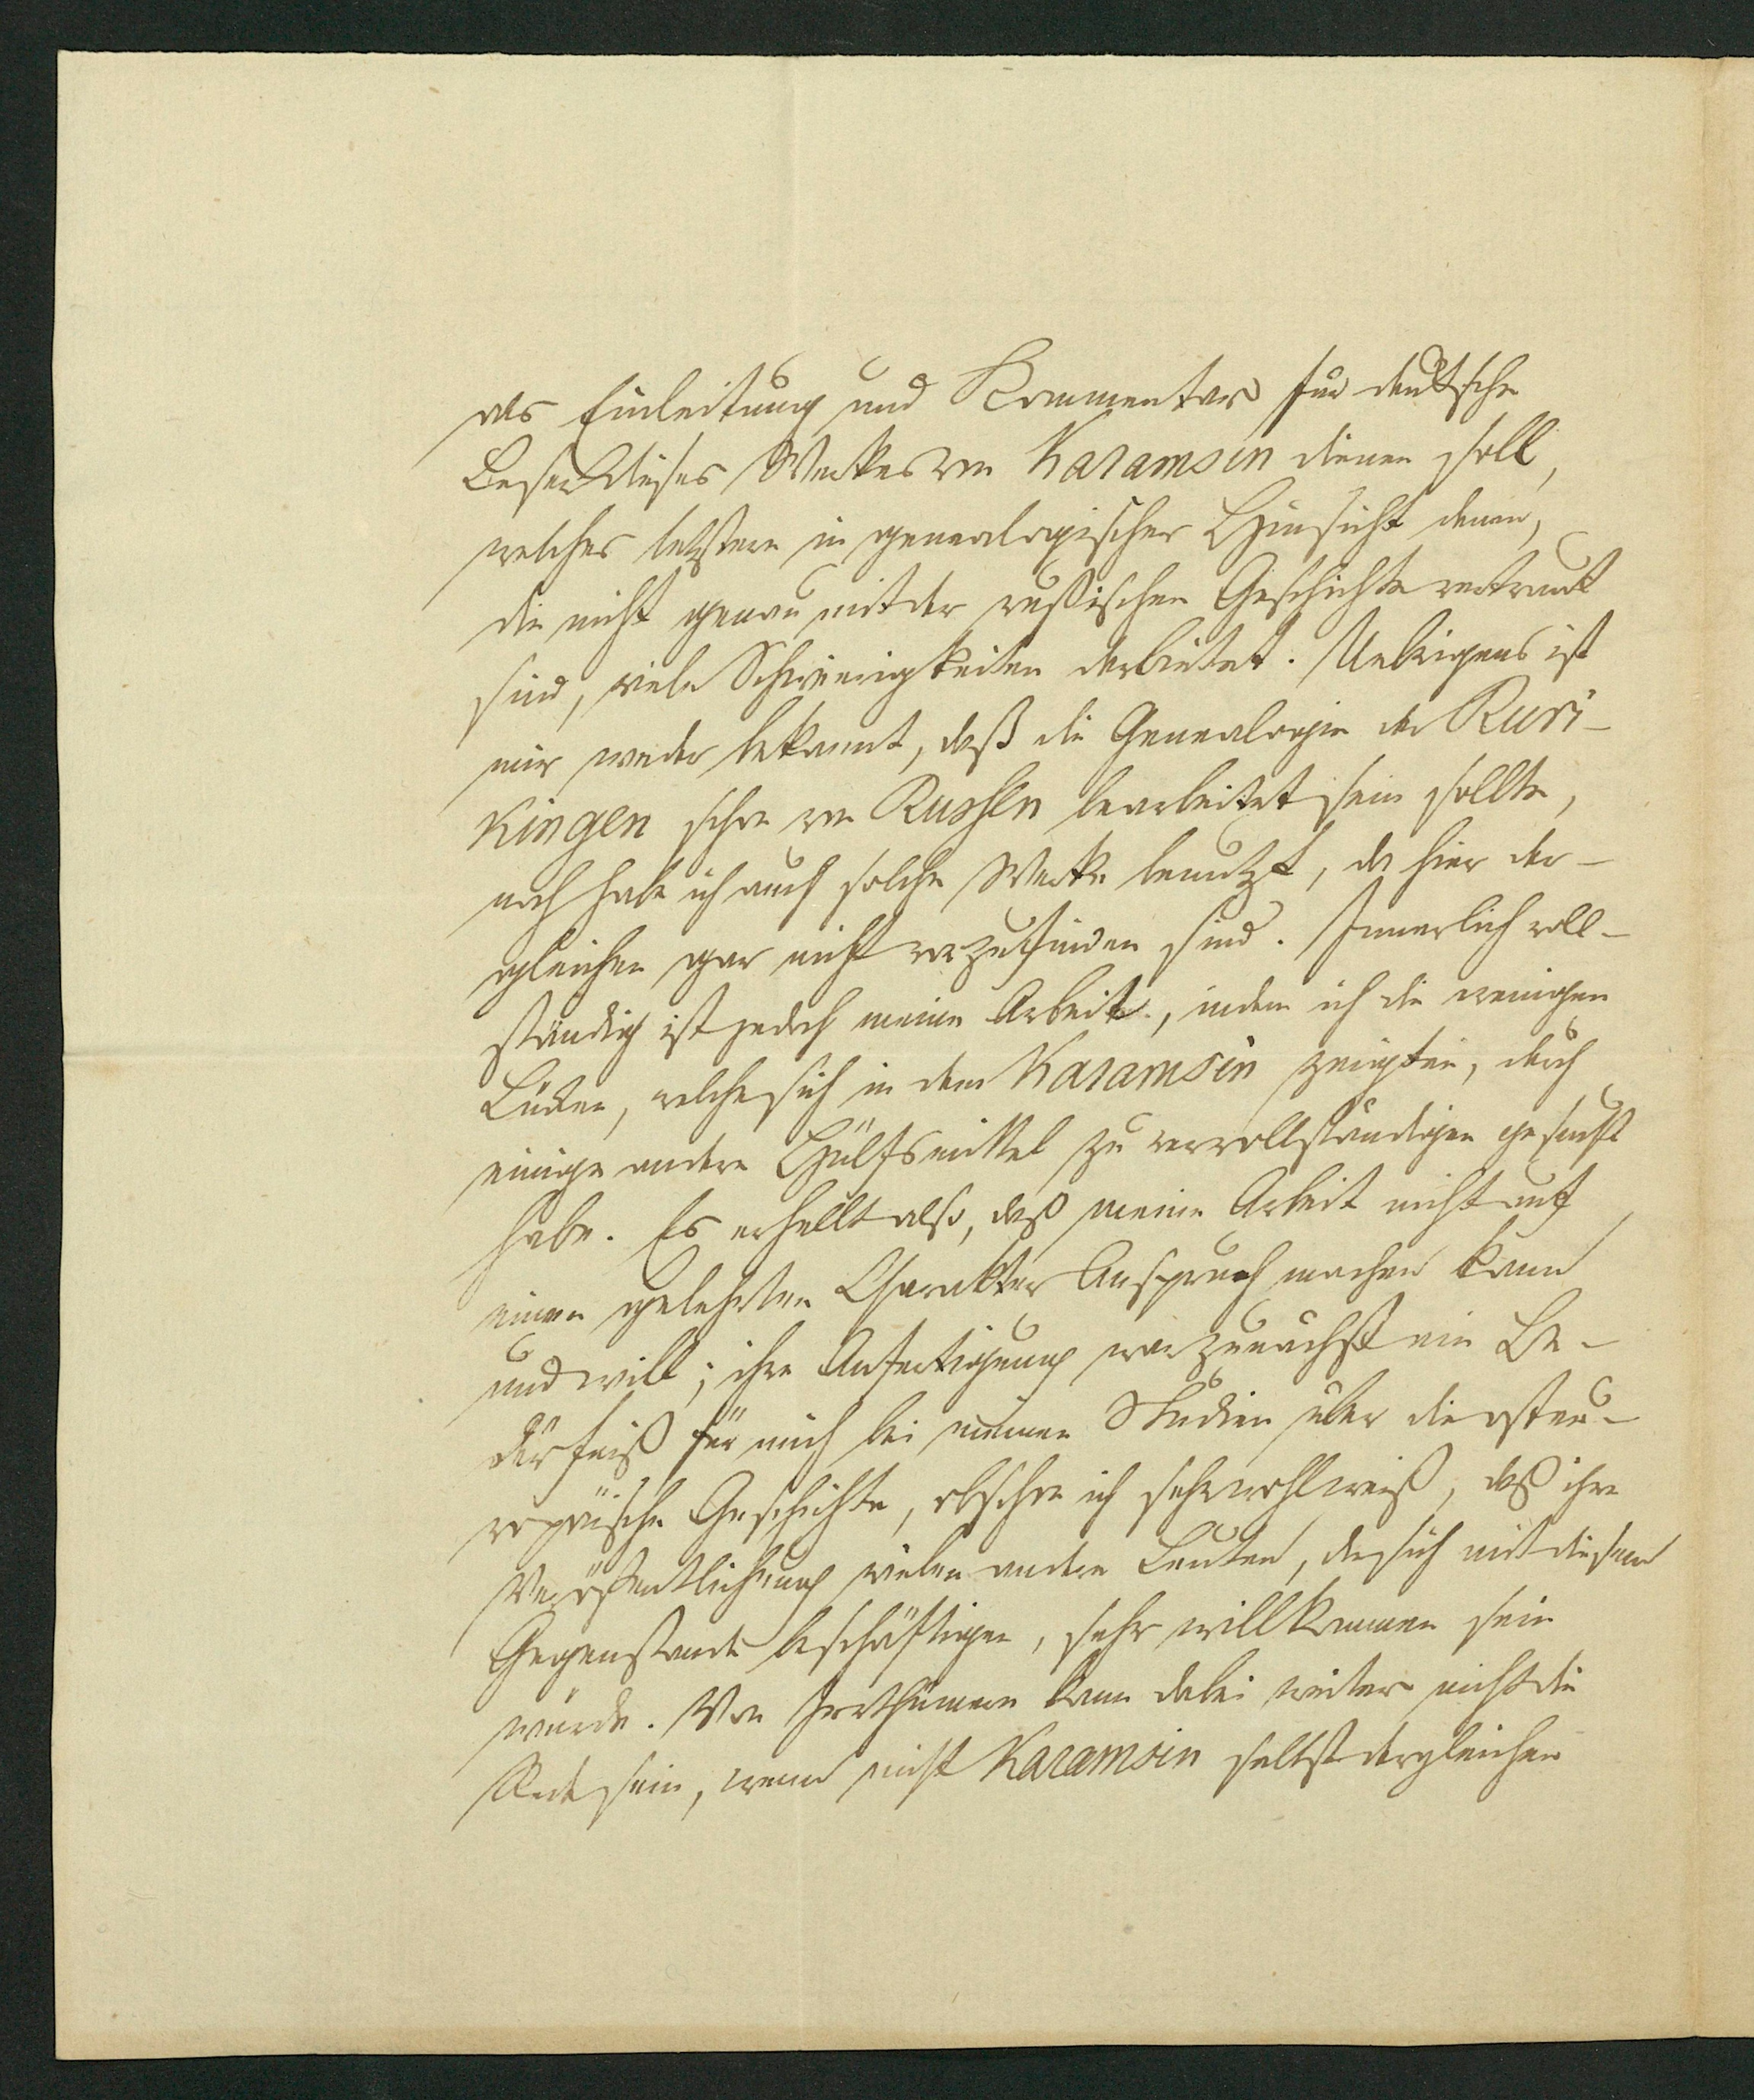 als Einleitung und Kommentar für deutsche
Leser dieses Werkes von Karamsin dienen soll,
welches letztere in genealogischer Hinsicht denen,
die nicht genau mit der russischen Geschichte vertraut
sind, viele Schwierigkeiten darbietet. Uebrigens ist
mir weder bekannt, daß die Genealogie der Ruri-
kingen schon von Russen bearbeitet sein sollte,
noch habe ich auch solche Werke benutzt, da hier der-
gleichen gar nicht vorzufinden sind. Innerlich voll-
ständig ist jedoch meine Arbeit, indem ich die wenigen
Lücken, welche sich in dem Karamsin zeigten, durch
einige andere Hülfsmittel zu vervollständigen gesucht
habe. Es erhellt also, daß meine Arbeit nicht auf
einen gelehrten Charakter Anspruch machen kann
und will; ihre Anfertigung war zunächst ein Be-
dürfniß für mich bei meinen Studien über die osteu-
ropäische Geschichte, obschon ich sehr wohl weiß, daß ihre
Veröffentlichung vielen andern Leuten, die sich mit diesem
Gegenstande beschäftigen, sehr willkommen sein
würde. Von Irrthümern kann dabei weiter nicht die
Rede sein, wenn nicht Karamsin selbst dergleichen